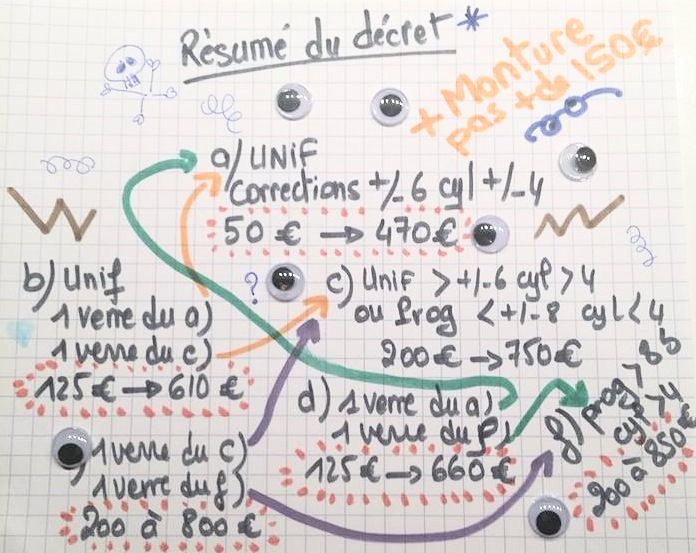 Résumé du décret *
+ Monture
pas + de 150€
a) UNIF
Corrections +/- 6 cyl +/- 4
50 € → 470 €
b) Unif
1 verre du a)
1 verre du c)
125 € → 610 €
?
c) Unif > +/- 6 cyl > 4
ou prog < +/- 8 cyl < 4
200 € → 750 €
d) 1 verre du a)
1 verre du f)
125 € → 660 €
) 1 verre du c)
1 verre du f)
200 à 800 €
f) prog >
cyl > 4
200 à 850 €